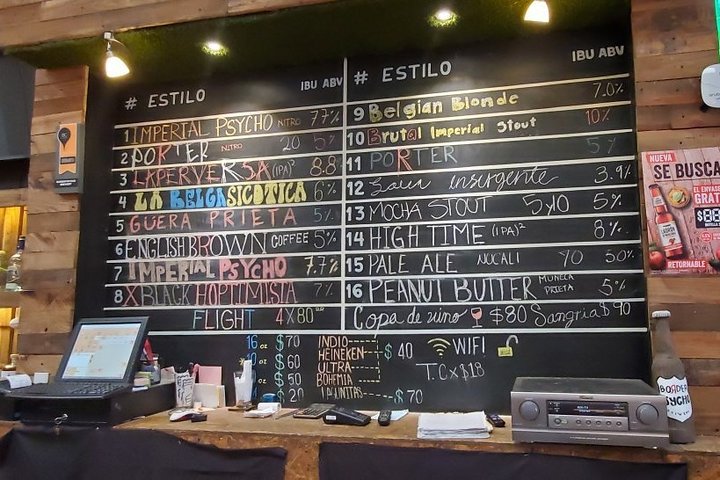 # ESTILO IBU ABV
1 IMPERIAL PSYCHO NITRO 7.7%
2 PORTER NITRO 20 5%
3 LAPERVERSA (IPA)² 8.8%
4 LA BELGASICOTICA 6%
5 GUERA PRIETA 5%
6 ENGLISH BROWN COFFEE 5%
7 IMPERIAL PSYCHO 7.7%
8 XBLACK HOPTIMISTA 7%
FLIGHT 4X80
# ESTILO IBU ABV
9 Belgian Blonde 7.0%
10 Brutal Imperial Stout 10%
11 PORTER 5%
12 Sour insurgente 3.9%
13 MOCHA STOUT 5%
14 HIGH TIME (IPA)² 8%
15 PALE ALE 5.0%
16 PEANUT BUTTER MUÑECA PRIETA 5%
Copa de vino $80 Sangria $90
16 oz $70
$60
$50
$20
INDIO
HEINEKEN
ULTRA
BOHEMIA
$40
LAGUNITAS $70
WIFI
T.C x $18
NUEVA
SE BUSCA
ENVASE
GRATIS
LADRÓN
RETORNABLE
BORDER
PSYCHO